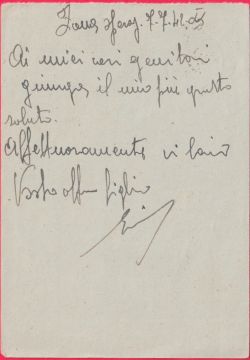 Zona 7.7.41.
Ai miei cari genitori
giunga il mio più grato
saluto.
Affettuosamente vi bacio
Vostro aff figlio